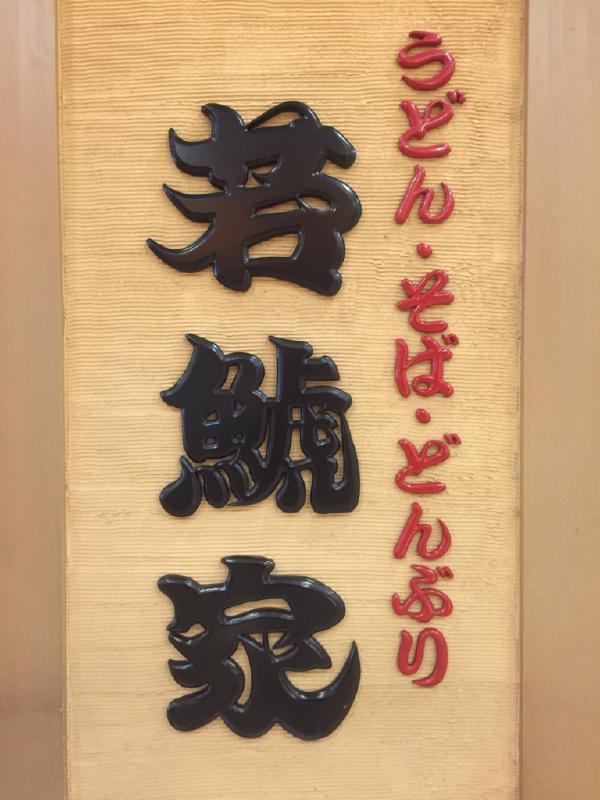 うどん・そば・どんぶり
若鯱家